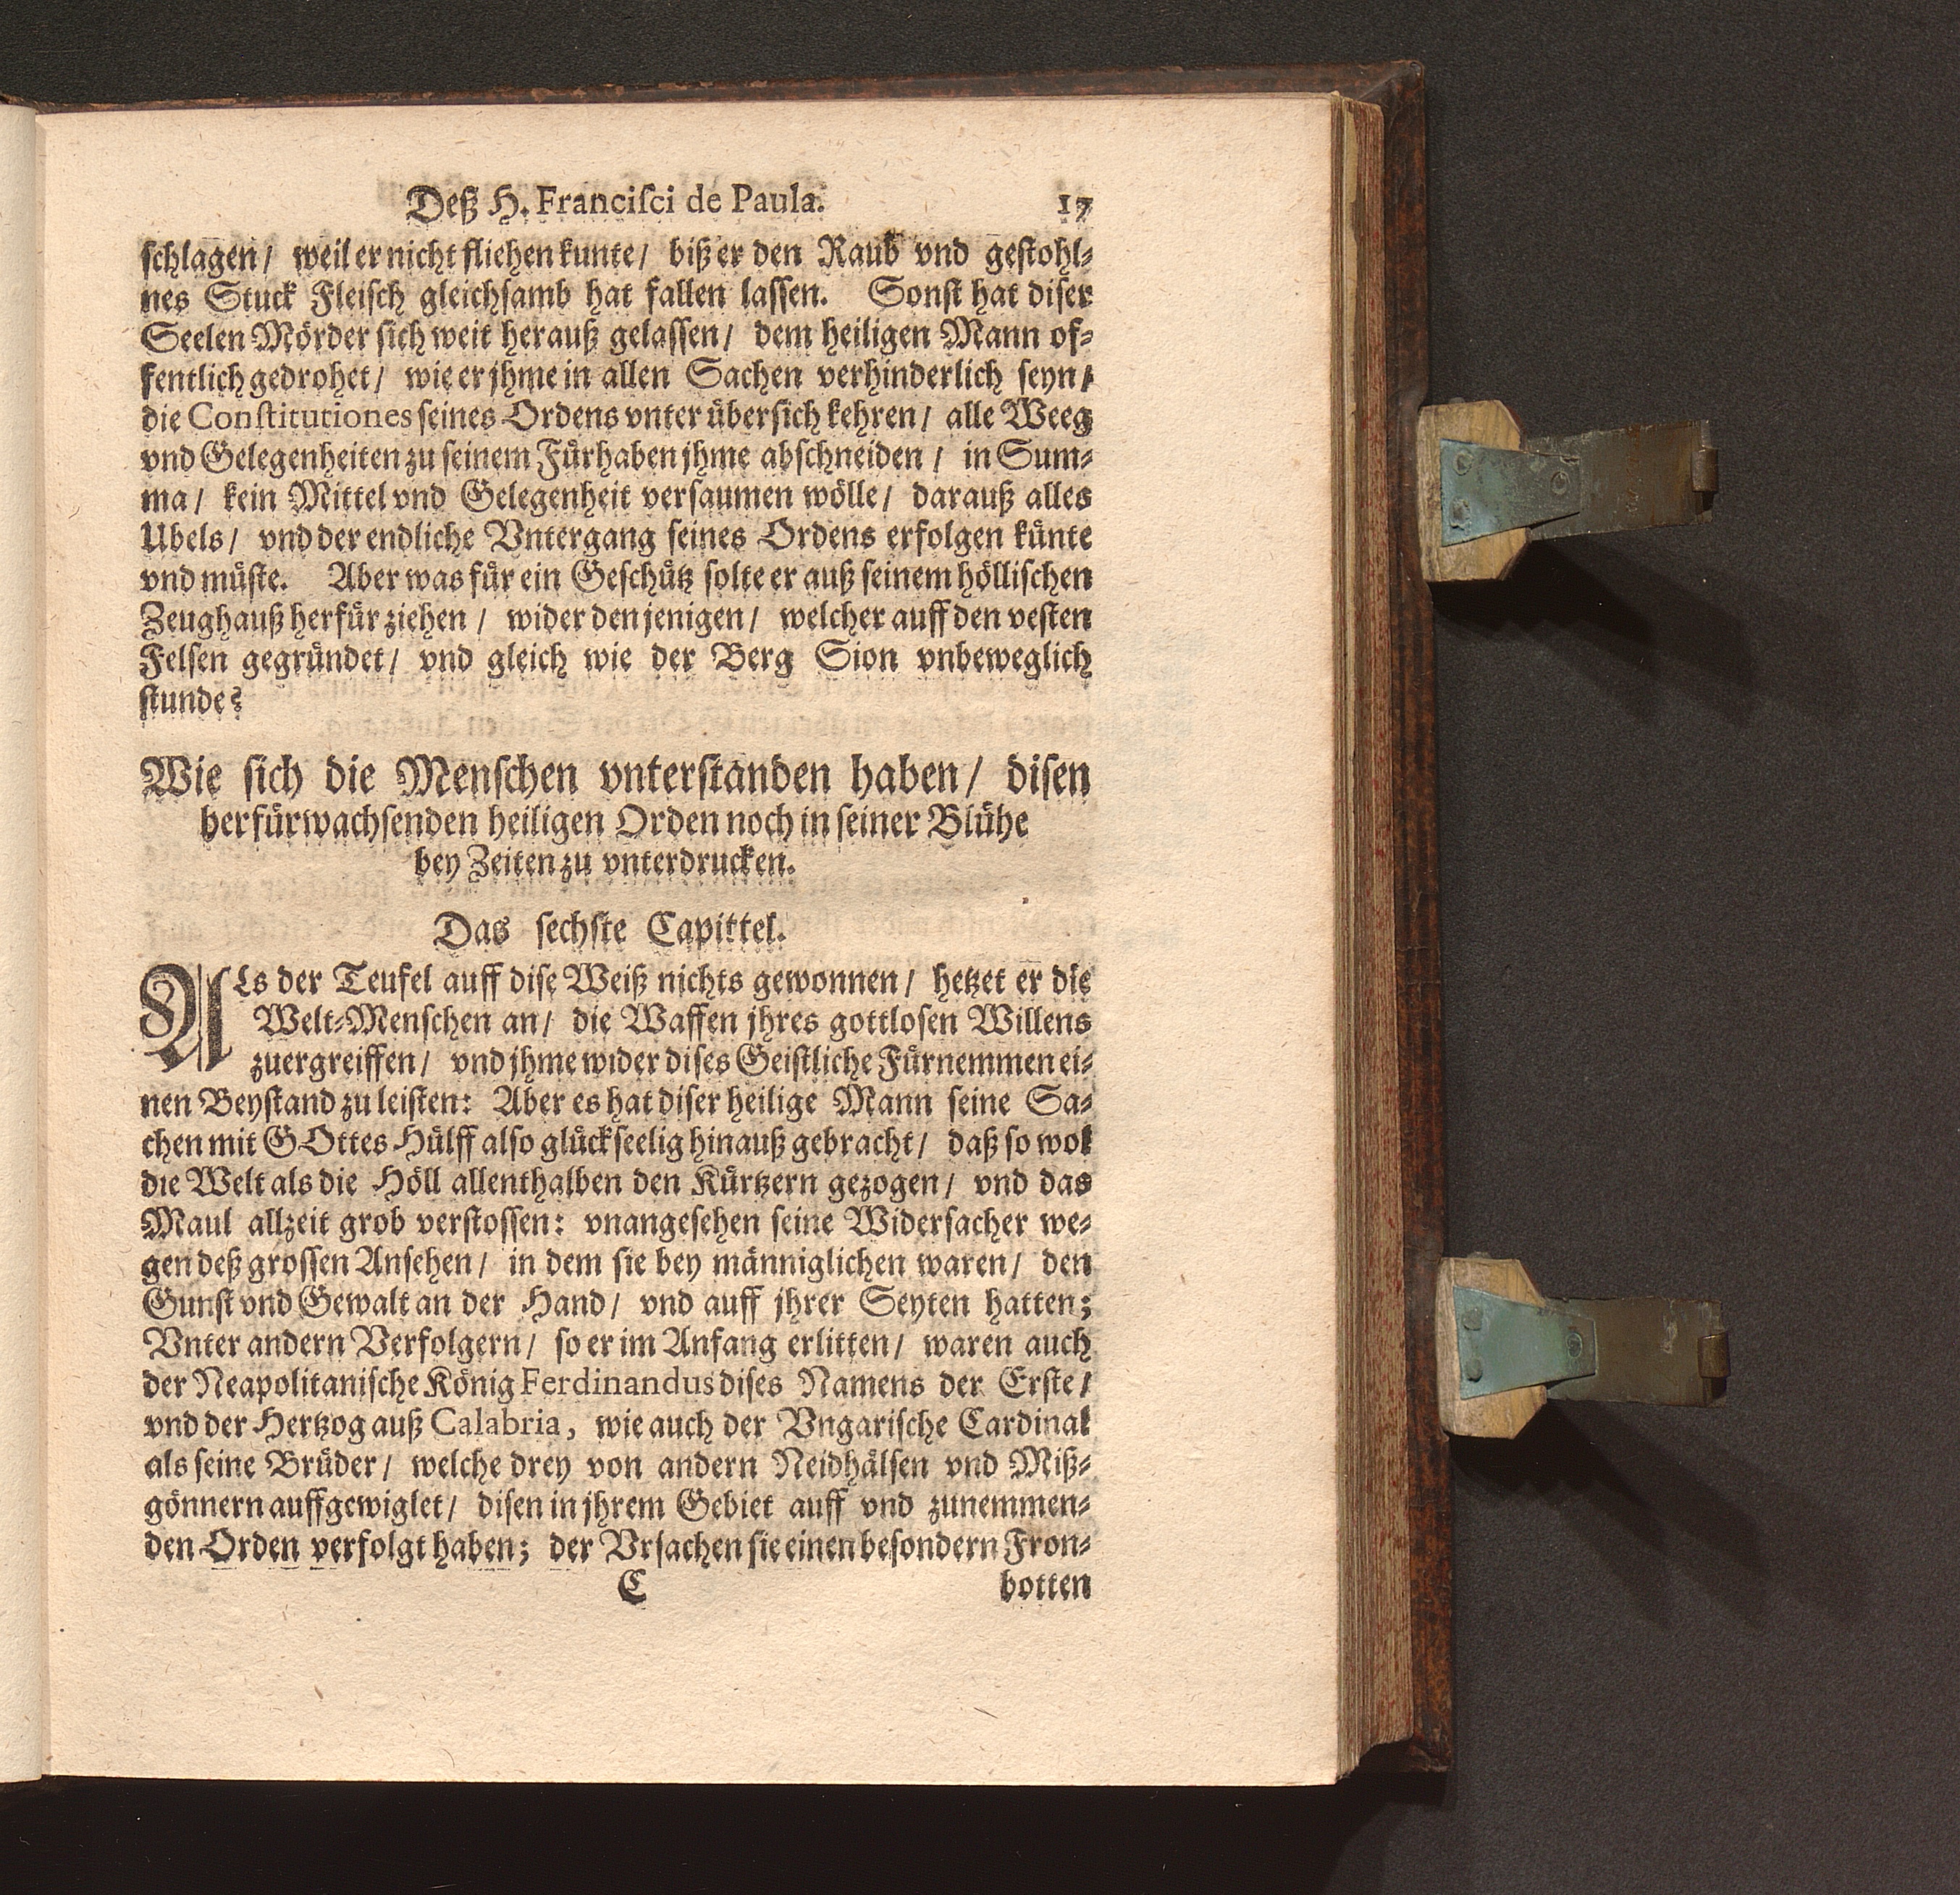 Deß H. Franciſci de Paula. 17
ſchlagen/ weil er nicht fliehen kunte/ biß er den Raub vnd geſtohl-
nes Stuck Fleiſch gleichſamb hat fallen laſſen. Sonſt hat diſer
Seelen Mörder ſich weit herauß gelaſſen/ dem heiligen Mann of-
fentlich gedrohet/ wie er jhme in allen Sachen verhinderlich ſeyn/
die Conſtitutiones ſeines Ordens vnter überſich kehren/ alle Weeg
vnd Gelegenheiten zu ſeinem Fürhaben jhme abſchneiden/ in Sum-
ma/ kein Mittel vnd Gelegenheit verſaumen wölle/ darauß alles
Ubels/ vnd der endliche Vntergang ſeines Ordens erfolgen künte
vnd müſte. Aber was für ein Geſchütz ſolte er auß ſeinem höllischen
Zeughauß herfür ziehen/ wider den jenigen/ welcher auff den veſten
Felſen gegründet/ vnd gleich wie der Berg Sion vnbeweglich
ſtunde?
Wie ſich die Menſchen vnterſtanden haben/ diſen
herfürwachſenden heiligen Orden noch in ſeiner Blühe
bey Zeiten zu vnterdrucken.
Das ſechſte Capittel.
ALs der Teufel auff diſe Weiß nichts gewonnen/ hetzet er die
Welt-Menſchen an/ die Waffen jhres gottloſen Willens
zuergreiffen/ vnd jhme wider diſes Geiſtliche Fürnemmen ei-
nen Beyſtand zu leiſten: Aber es hat diſer heilige Mann ſeine Sa-
chen mit GOttes Hülff alſo glückſeelig hinauß gebracht/ daß ſo wol
die Welt als die Höll allenthalben den Kürtzern gezogen/ vnd das
Maul allzeit grob verſtoſſen: vnangeſehen ſeine Widerſacher we-
gen deß groſſen Anſehen/ in dem ſie bey männiglichen waren/ den
Gunſt vnd Gewalt an der Hand/ vnd auff jhrer Seyten hatten;
Vnter andern Verfolgern/ ſo er im Anfang erlitten/ waren auch
der Neapolitaniſche König Ferdinandus diſes Namens der Erſte/
vnd der Hertzog auß Calabria, wie auch der Vngariſche Cardinal
als ſeine Brüder/ welche drey von andern Neidhälſen vnd Miß-
gönnern auffgewiglet/ diſen in jhrem Gebiet auff vnd zunemmen-
den Orden verfolgt haben; der Vrſachen ſie einen beſondern Fron-
C botten